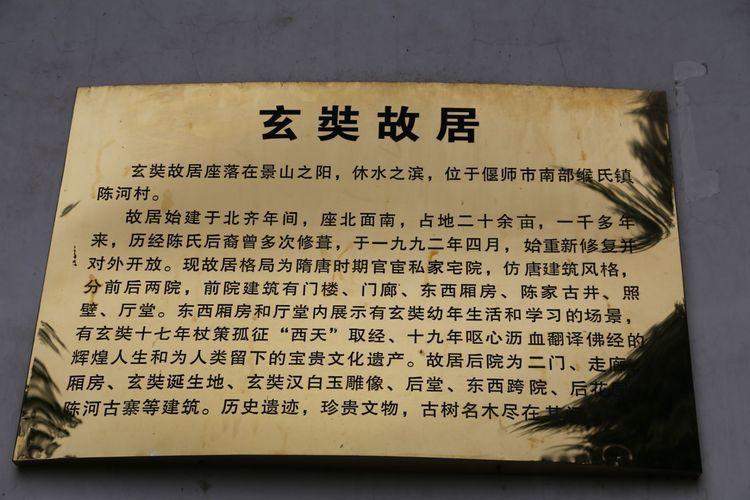 玄奘故居
玄奘故居座落在景山之阳，休水之滨，位于偃师市南部缑氏镇
陈河村。
故居始建于北齐年间，座北面南，占地二十余亩，一千多年
来，历经陈氏后裔曾多次修葺，于一九九二年四月，始重新修复并
对外开放。现故居格局为隋唐时期官宦私家宅院，仿唐建筑风格，
分前后两院，前院建筑有门楼、门廊、东西厢房、陈家古井、照
壁、厅堂。东西厢房和厅堂内展示有玄奘幼年生活和学习的场景，
有玄奘十七年杖策孤征“西天”取经、十九年呕心沥血翻译佛经的
辉煌人生和为人类留下的宝贵文化遗产。故居后院为二门、走廊、
厢房、玄奘诞生地、玄奘汉白玉雕像、后堂、东西跨院、后花
陈河古寨等建筑。历史遗迹，珍贵文物，古树名木尽在其